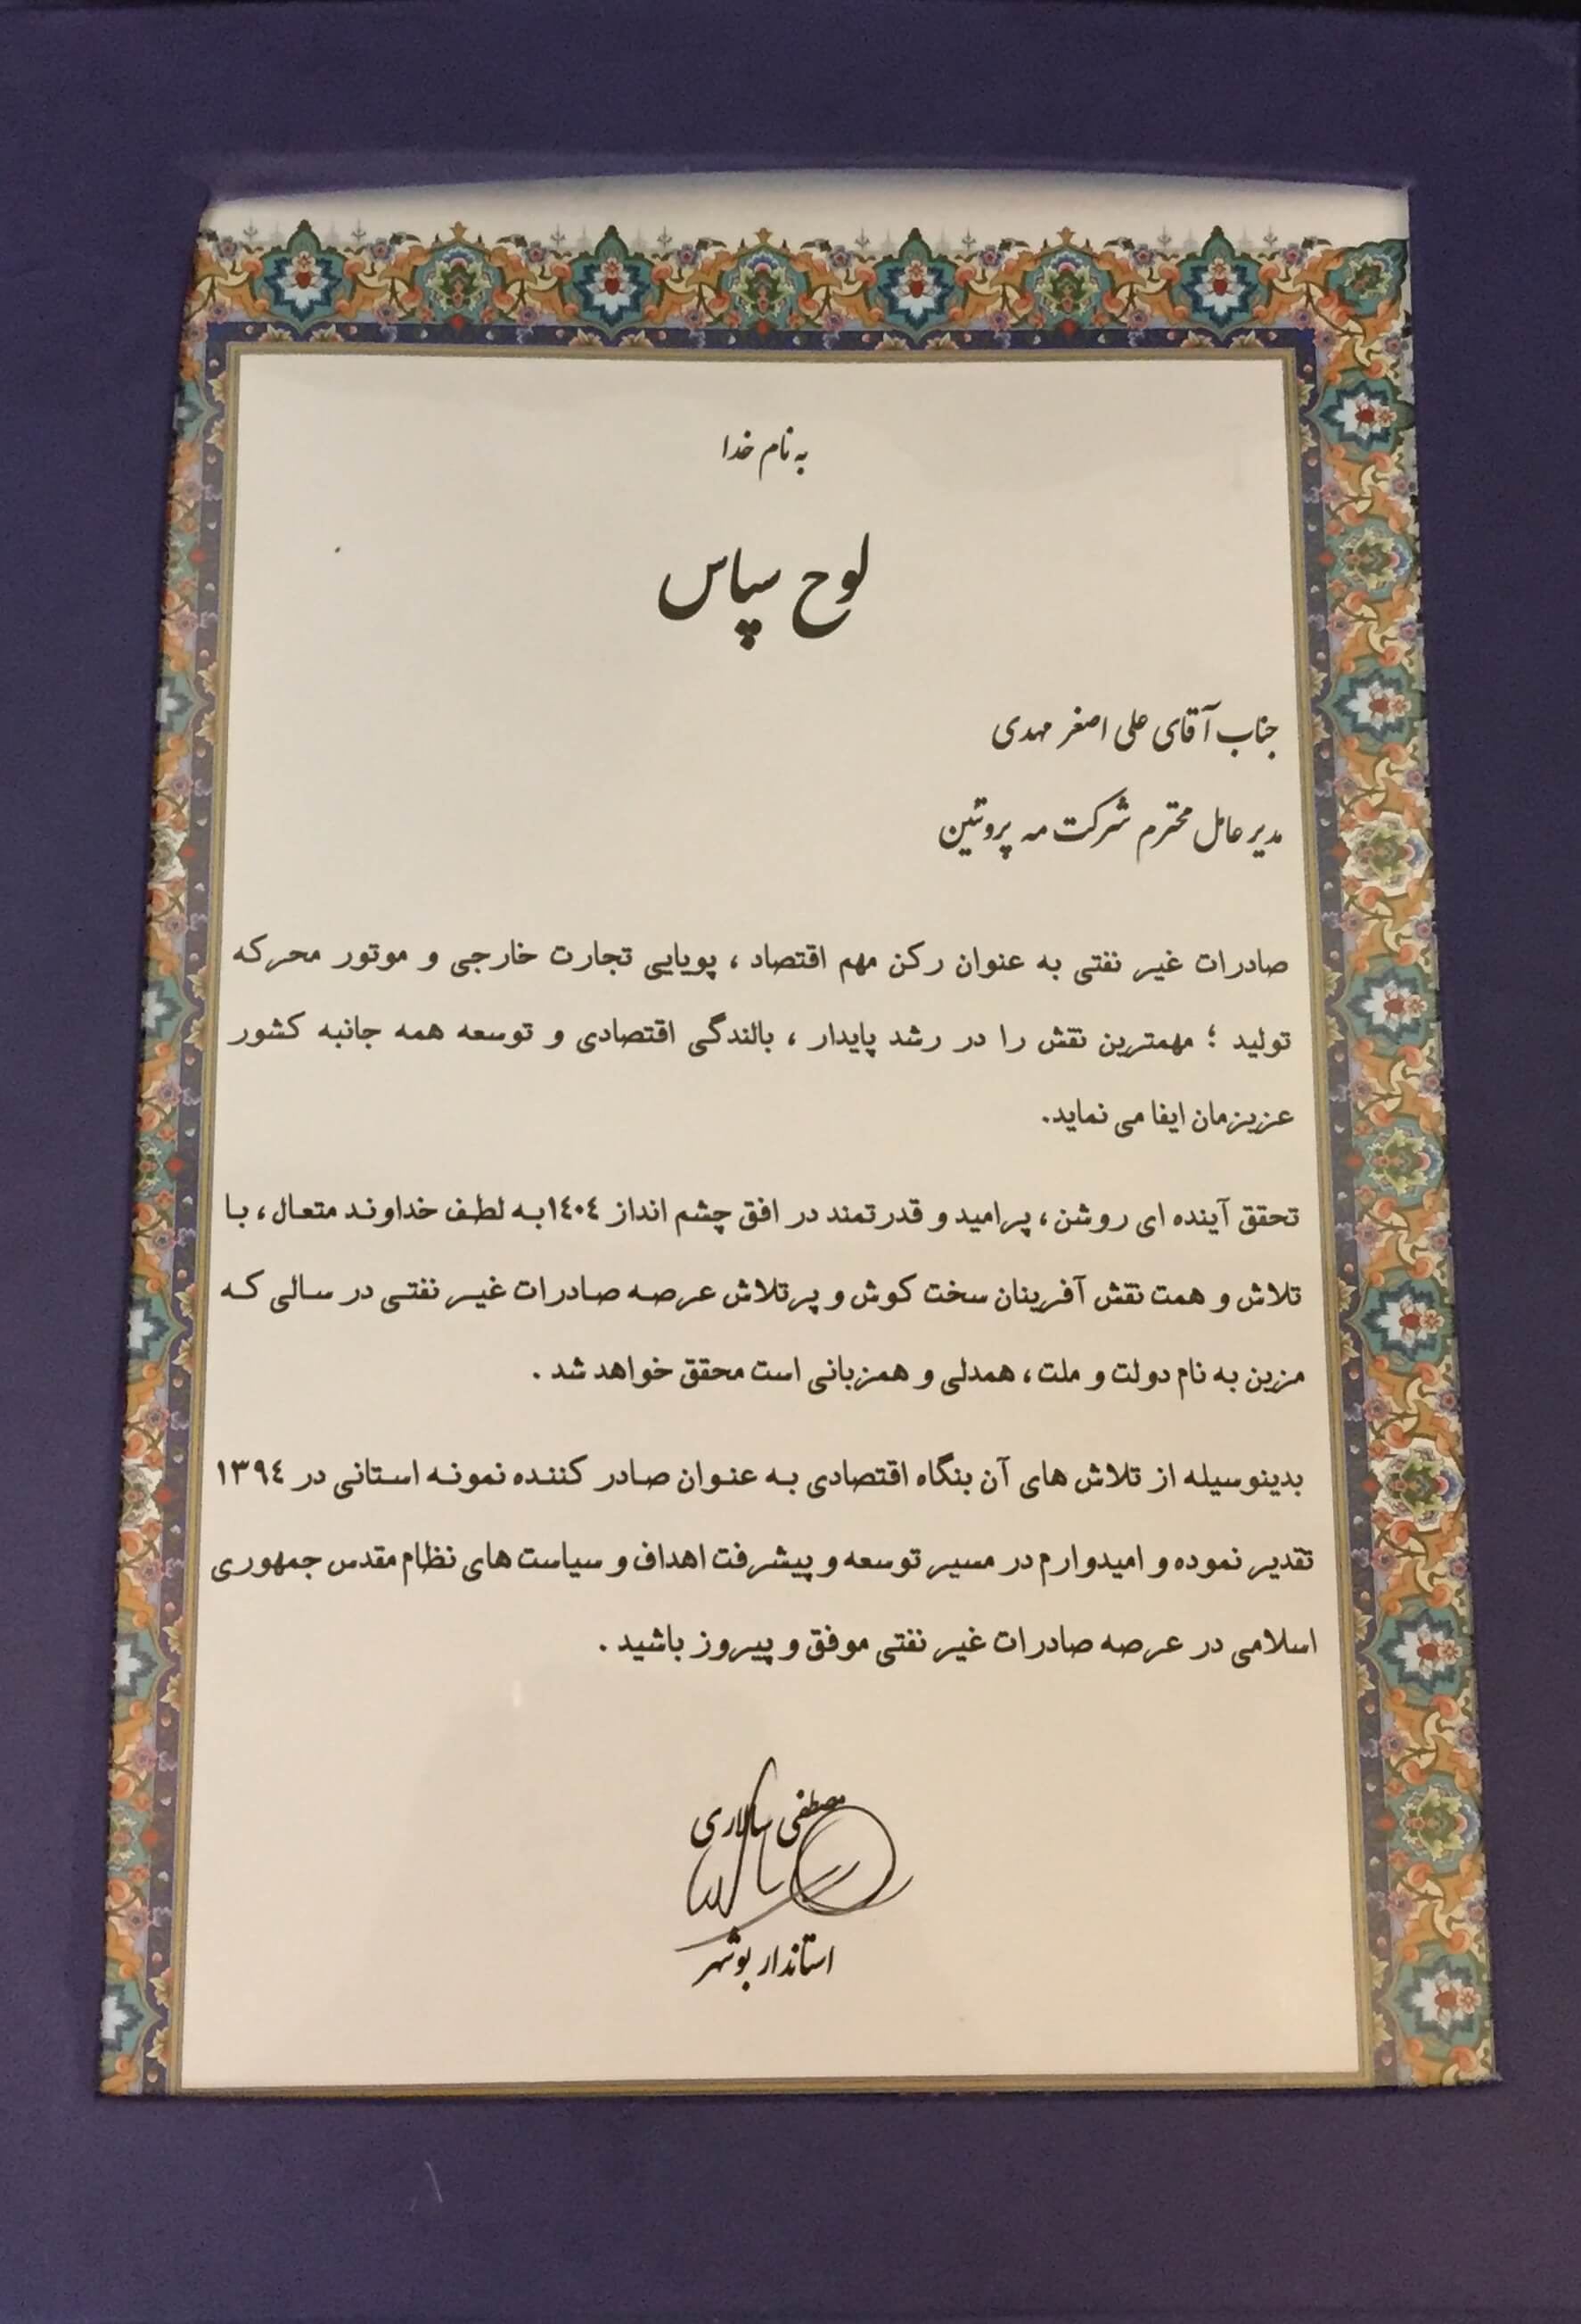 به نام خدا
لوح سپاس
جناب آقای علی اصغر مهدی
مدیر عامل محترم شرکت مه پروتئین
صادرات غیر نفتی به عنوان رکن مهم اقتصاد ، پویایی تجارت خارجی و موتور محرکه
تولید ؛ مهمترین نقش را در رشد پایدار ، بالندگی اقتصادی و توسعه همه جانبه کشور
عزیزمان ایفا می نماید.
تحقق آینده ای روشن ، پرامید و قدرتمند در افق چشم انداز ١٤٠٤به لطف خداوند متعال ، با
تلاش و همت نقش آفرینان سخت کوش و پرتلاش عرصه صادرات غیر نفتی در سالی که
مزین به نام دولت و ملت ، همدلی و همزبانی است محقق خواهد شد .
بدینوسیله از تلاش های آن بنگاه اقتصادی به عنوان صادر کننده نمونه استانی در ١٣٩٤
تقدیر نموده و امیدوارم در مسیر توسعه و پیشرفت اهداف و سیاست های نظام مقدس جمهوری
اسلامی در عرصه صادرات غیر نفتی موفق و پیروز باشید .
مصطفی سالاری
استاندار بوشهر